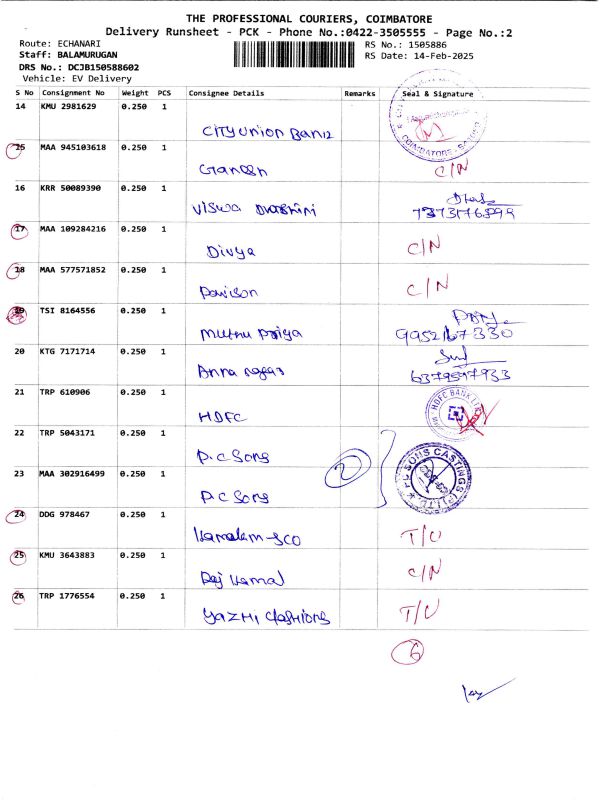 THE PROFESSIONAL COURIERS, COIMBATORE
Delivery Runsheet - PCK - Phone No.:0422-3505555 - Page No.:2
Route: ECHANARI
RS No.: 1505886
Staff: BALAMURUGAN
RS Date: 14-Feb-2025
DRS No.: DCJB150588602
Vehicle: EV Delivery
S No Consignment No Weight PCS Consignee Details Remarks Seal & Signature
14 KMU 2981629 0.250 1
City Union Bank
COIMBATORE
15 MAA 945103618 0.250 1
Ganesh C/N
16 KRR 50089390 0.250 1
Viswa
17 MAA 109284216 0.250 1
Divya C/N
18 MAA 577571852 0.250 1
Davison C/N
19 TSI 8164556 0.250 1
Muthu Priya 9952167330
20 KTG 7171714 0.250 1
Anna
21 TRP 610906 0.250 1
HDFC
HDFC BANK LTD
22 TRP 5043171 0.250 1
P.C Sons
2
PC SONS CASTINGS (P) LTD
23 MAA 302916499 0.250 1
P.C Sons
24 DDG 978467 0.250 1
Kamalam-SCO T/U
25 KMU 3643883 0.250 1
Raj Kamal C/N
26 TRP 1776554 0.250 1
Yazhi Fashions T/U
6